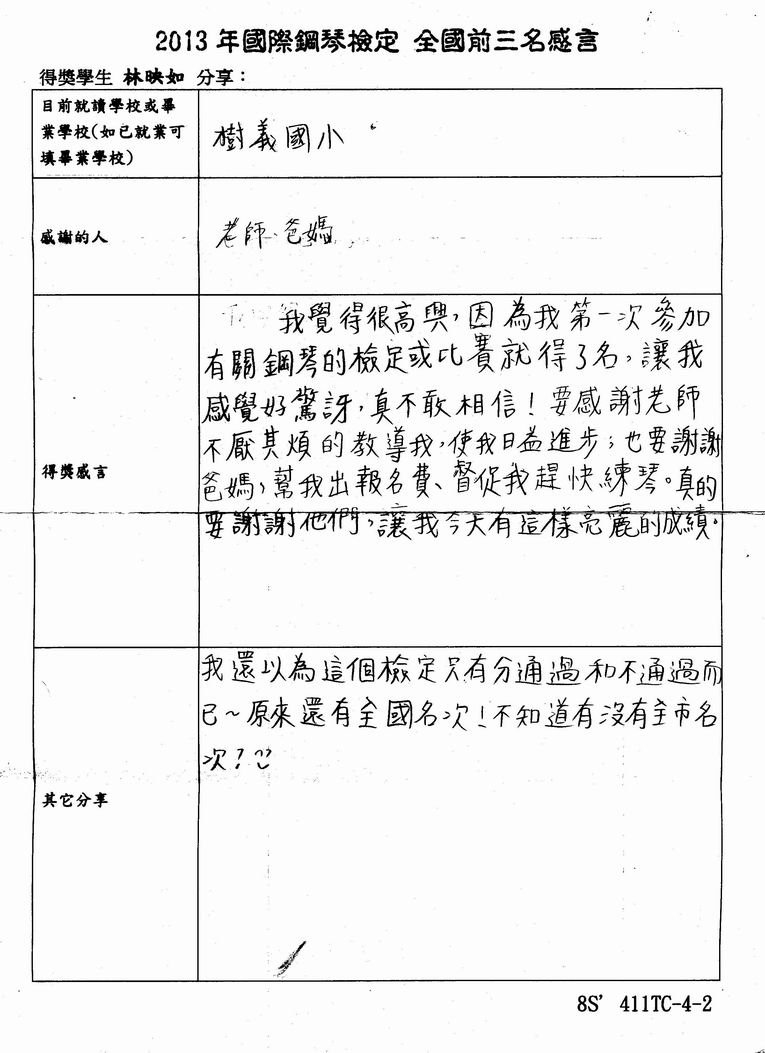 2013 年國際鋼琴檢定 全國前三名感言
得獎學生 林映如 分享：
目前就讀學校或畢
業學校(如已就業可
填畢業學校)
樹義國小。
感謝的人
老師、爸媽
我覺得很高興，因為我第一次參加
有關鋼琴的檢定或比賽就得了名，讓我
感覺好驚訝，真不敢相信！要感謝老師
不厭其煩的教導我，使我日益進步；也要謝謝
爸媽，幫我出報名費、督促我趕快練琴。真的
要謝謝他們，讓我今天有這樣亮麗的成績。
得獎感言
我還以為這個檢定只有分通過和不通過而
已～原來還有全國名次！不知道有沒有全市名
次？
其它分享
8S' 411TC-4-2